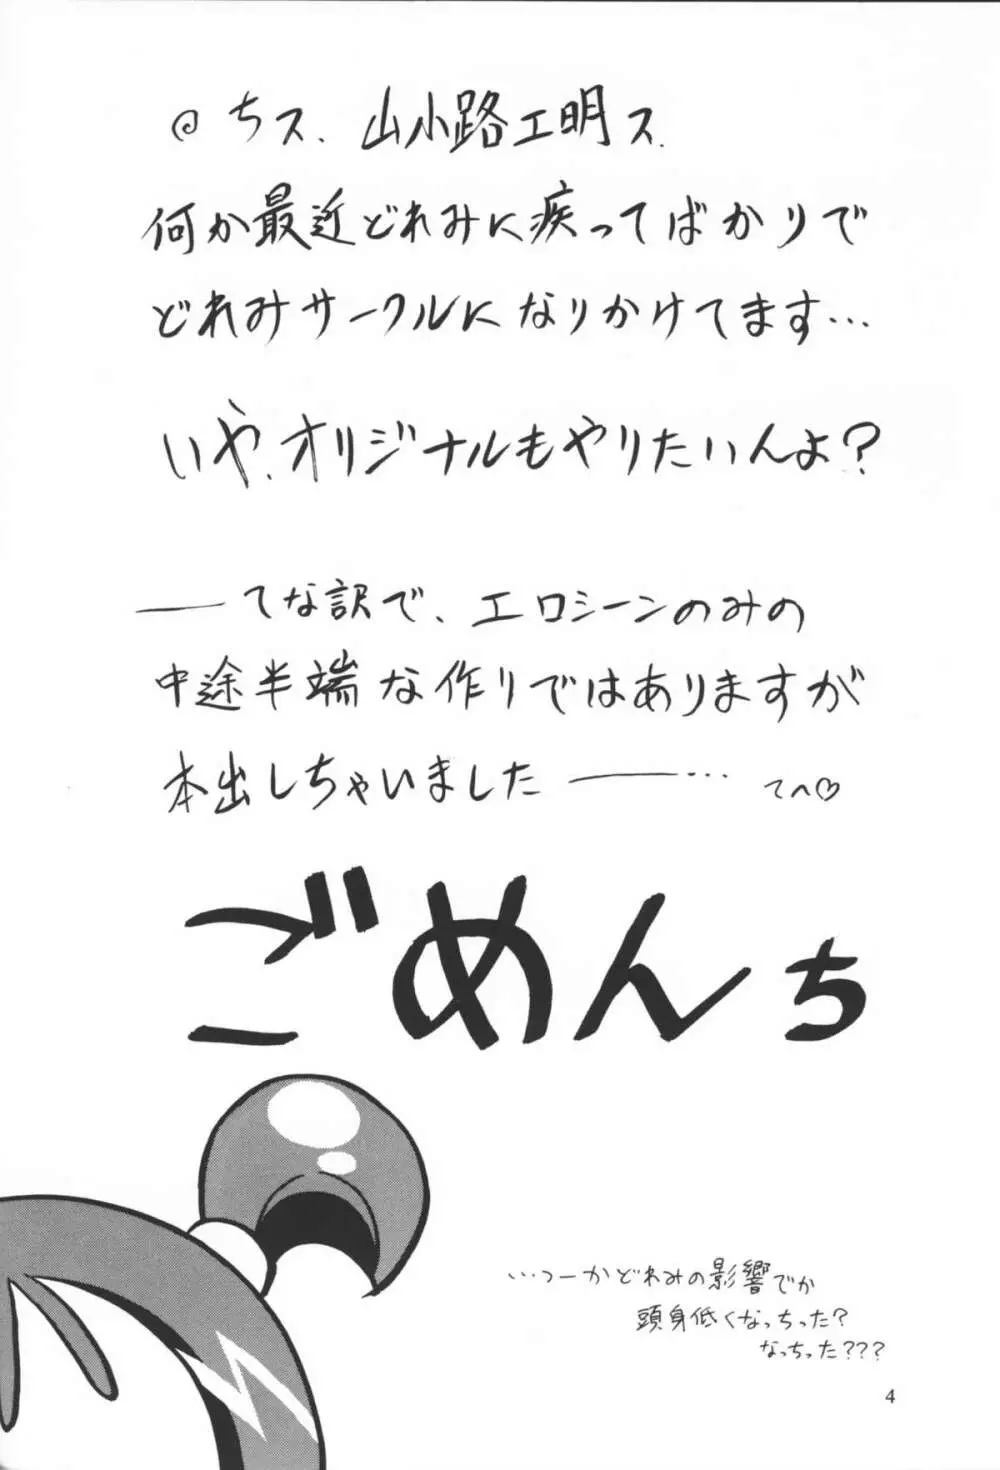 @ ちス、山小路工明ス.
何か最近どれみに疾ってばかりで
どれみサークルになりかけてます…
いや、オリジナルもやりたいんよ?
——てな訳で、エロシーンのみの
中途半端な作りではありますが
本出しちゃいました——… てへ♡
ごめんち
…つーかどれみの影響でか
頭身低くなっちった?
なっちった???
4